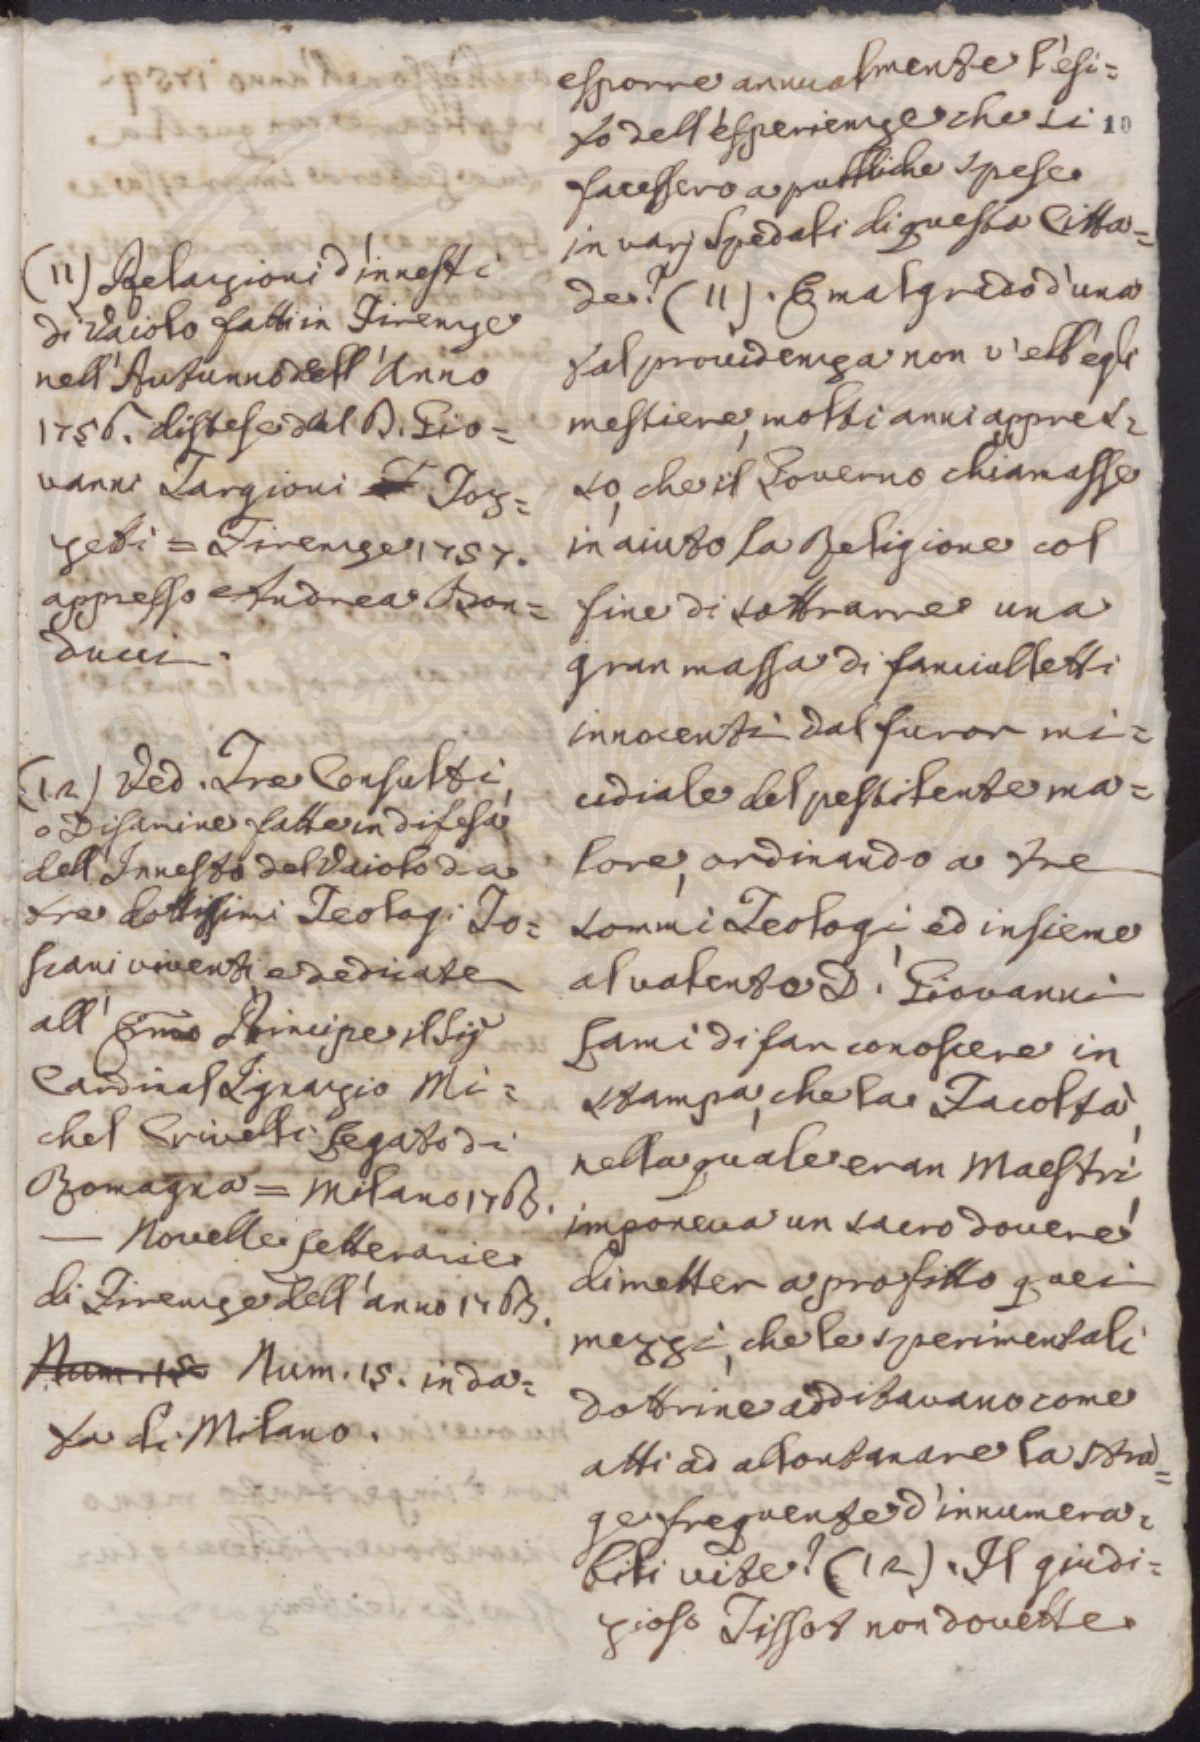 esporre annualmente l'esi=
to dell'esperienze che si
10
facessero a pubbliche spese
in varj Spedali di questa Citta=
de? (11). E malgrado d'una
tal providenza non v'ebb'egli
mestiere, molti anni appres=
so, che il Governo chiamasse
in aiuto la Religione col
fine di sottrarre una
gran massa di fanciulletti
innocenti dal furor mi=
cidiale del pestilente ma=
lore, ordinando a tre
sommi Teologi, ed insieme
al valente D. Giovanni
Lami di far conoscere in
stampa, che la Facoltà,
nella quale eran Maestri,
imponeva un sacro dovere
di metter a profitto quei
mezzi, che le sperimentali
dottrine additavano come
atti ad allontanare la stra=
ge frequente d'innumera=
bili vite? (12). Il giudi=
zioso Tissot non dovette
(11) Relazioni d'innesti
di Vaiolo fatti in Firenze
nell'Autunno dell'Anno
1756. distese dal D. Gio=
vanni Targioni Toz=
zetti = Firenze 1757.
appresso Andrea Bon=
ducci.
(12) Ved. Tre Consulti,
o Disamine fatte in difesa
dell'Innesto del Vaiolo da
tre dottissimi Teologi To=
scani viventi e dedicate
all' Emo Principe il Sig
Cardinal Ignazio Mi=
chel Crivelli Legato di
Romagna = Milano 1763.
— Novelle Letterarie
di Firenze dell'anno 1763.
Num. 15 Num. 15. in da=
ta di Milano.